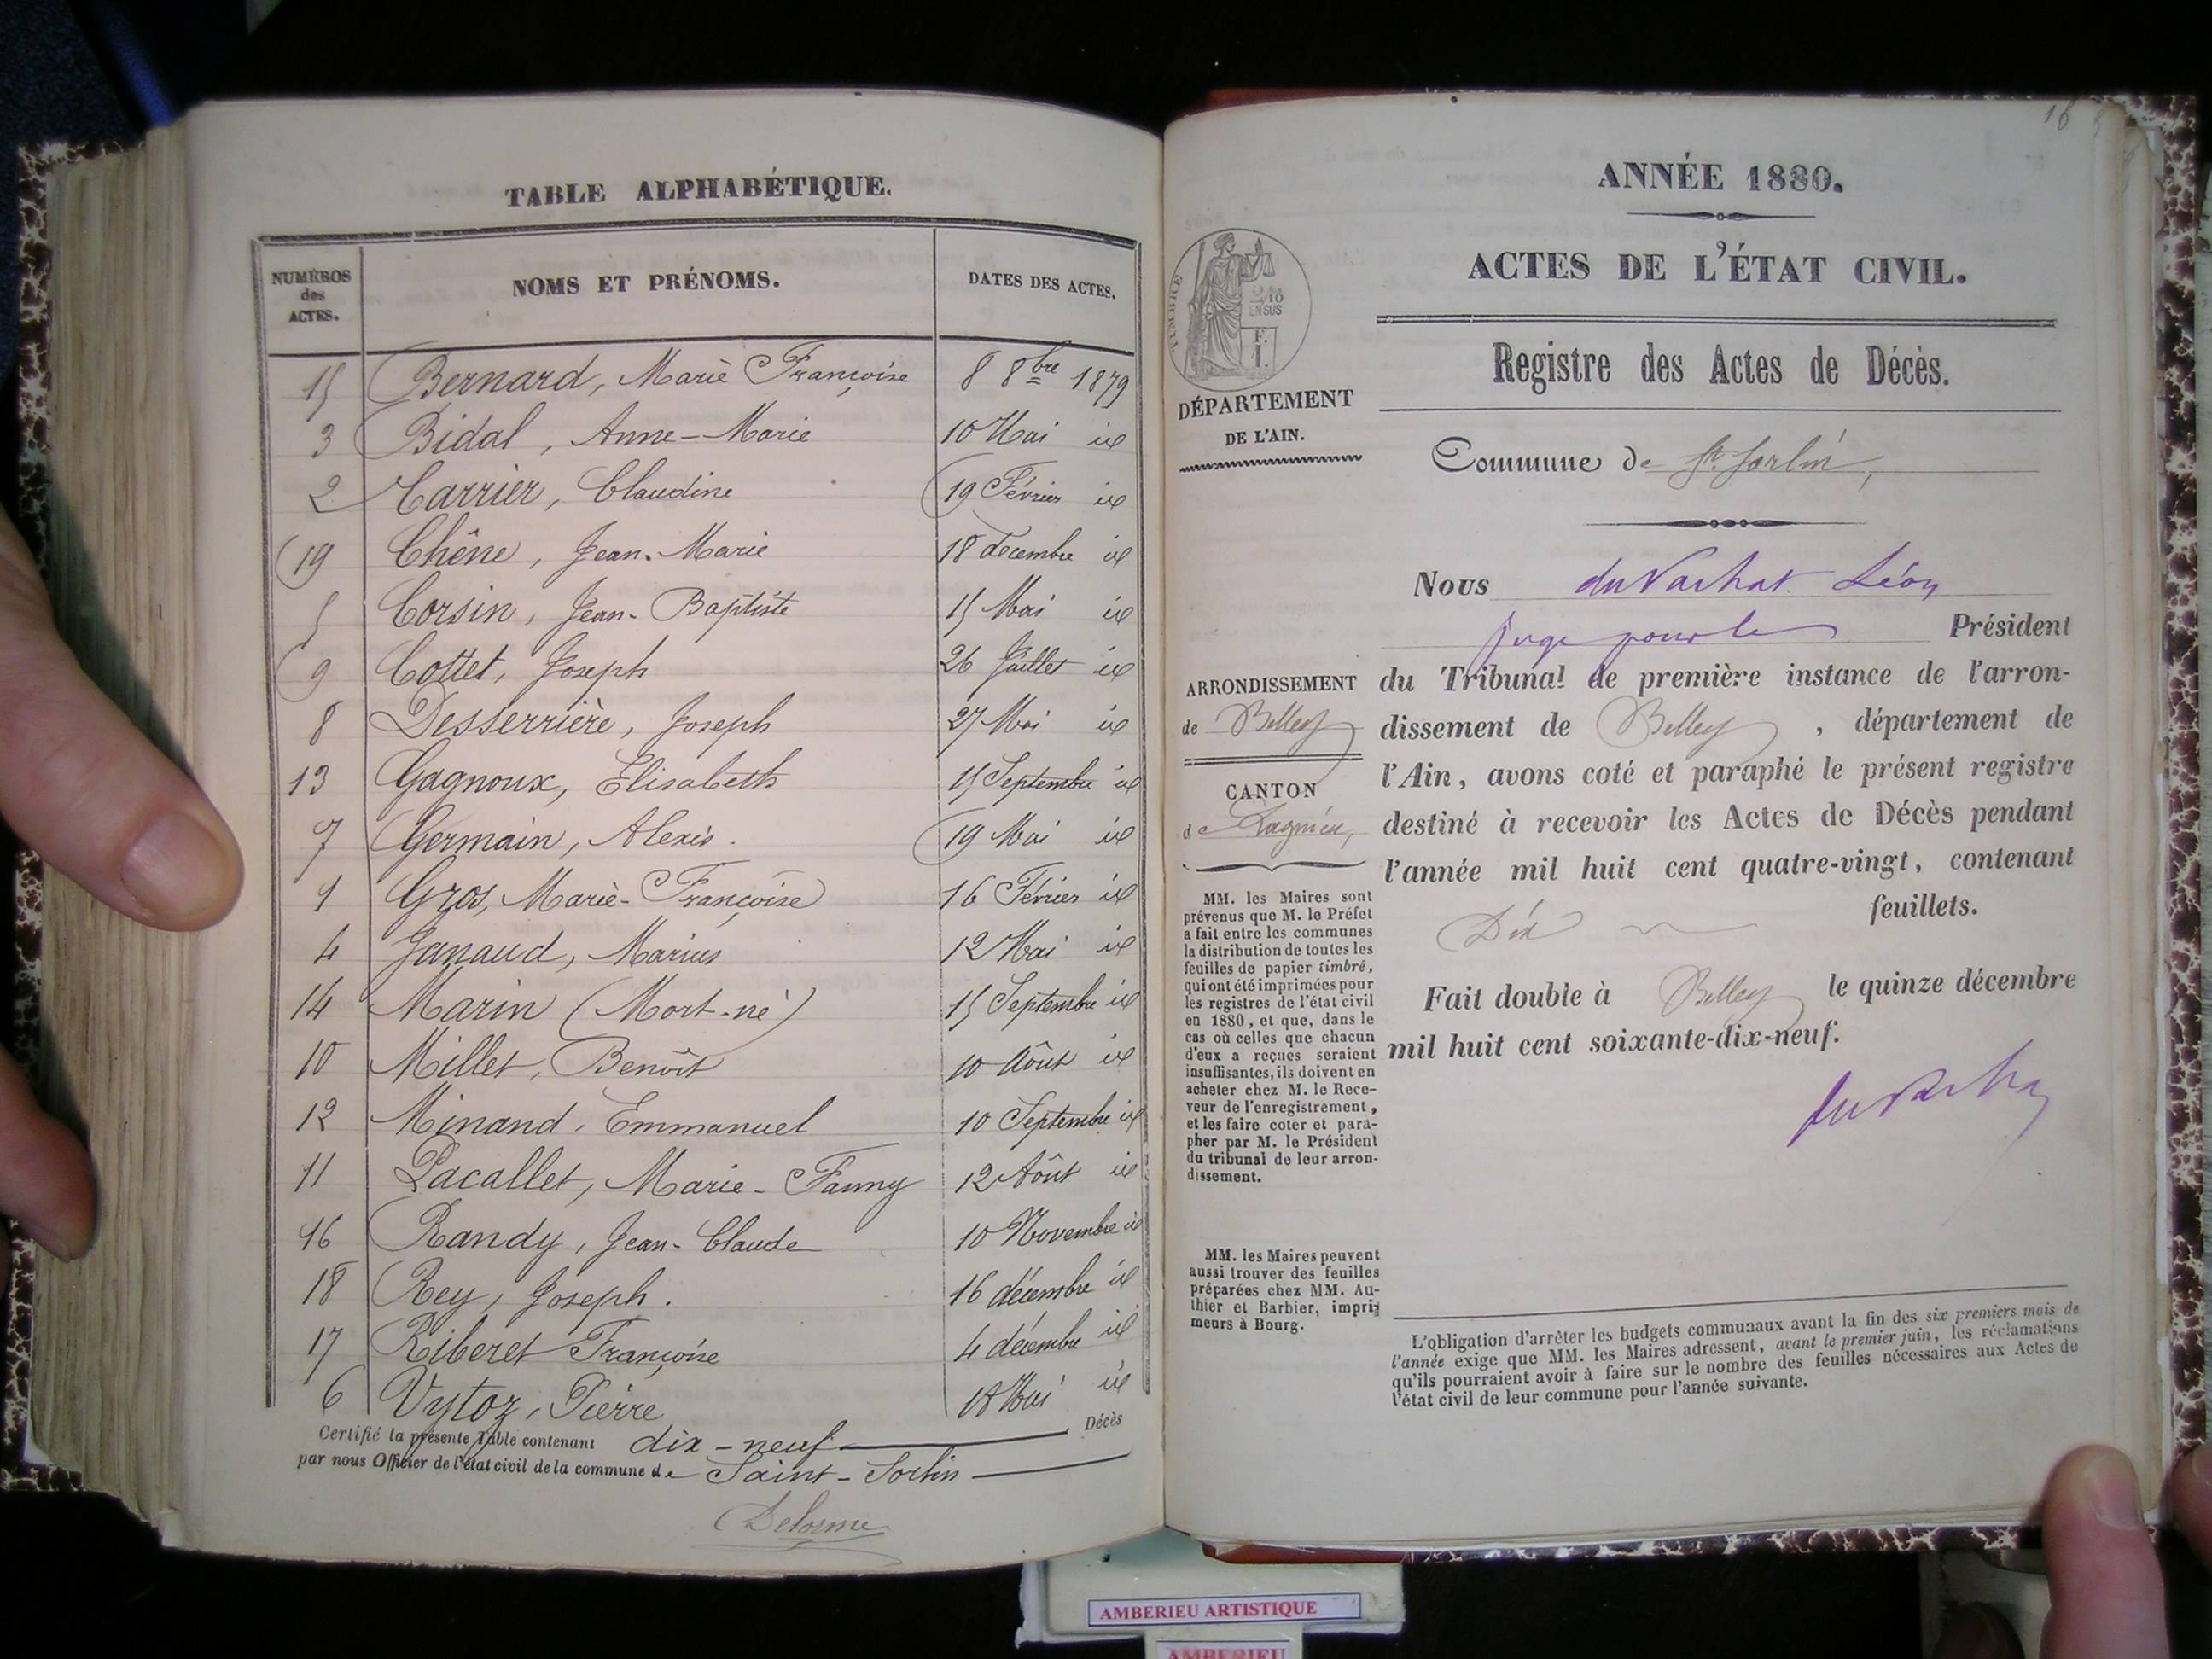 TABLE ALPHABÉTIQUE.
NUMÉROS des ACTES.
NOMS ET PRÉNOMS.
DATES DES ACTES.
15 Bernard, Marie Françoise 8 8bre 1879
3 Bidal, Anne-Marie 10 Mai id
2 Carrier, Claudine 19 Février id
19 Chêne, Jean-Marie 18 décembre id
5 Corsin, Jean-Baptiste 15 Mai id
9 Cottet, Joseph 26 Juillet id
8 Desserrière, Joseph 27 Mai id
13 Gagnoux, Élisabeth 15 Septembre id
7 Germain, Alexis. 19 Mai id
1 Gros, Marie-Françoise 16 Février id
4 Janaud, Marius 12 Mai id
14 Marin (Mort-né) 15 Septembre id
10 Millet, Benoît 10 Août id
12 Minand, Emmanuel 10 Septembre id
11 Pacallet, Marie-Fanny 12 Août id
16 Randy, Jean-Claude 10 Novembre id
18 Rey, Joseph. 16 décembre id
17 Riberet Françoise 4 décembre id
6 Vytoz, Pierre 18 Mai id
Certifié la présente Table contenant dix-neuf Décès
par nous Officier de l'état civil de la commune de Saint-Sorlin
Delorme
16
ANNÉE 1880.
ACTES DE L'ÉTAT CIVIL.
TIMBRE
2/10
EN SUS
F.
1.
Registre des Actes de Décès.
DÉPARTEMENT
DE L'AIN.
Commune de St. Sorlin,
Nous du Vachat Léon
juge pour le Président
du Tribunal de première instance de l'arron-
dissement de Belley, département de
l'Ain, avons coté et paraphé le présent registre
destiné à recevoir les Actes de Décès pendant
l'année mil huit cent quatre-vingt, contenant
Dix feuillets.
Fait double à Belley le quinze décembre
mil huit cent soixante-dix-neuf.
du Vachat
ARRONDISSEMENT
de Belley
CANTON
de Lagnieu,
MM. les Maires sont
prévenus que M. le Préfet
a fait entre les communes
la distribution de toutes les
feuilles de papier timbré,
qui ont été imprimées pour
les registres de l'état civil
en 1880, et que, dans le
cas où celles que chacun
d'eux a reçues seraient
insuffisantes, ils doivent en
acheter chez M. le Rece-
veur de l'enregistrement,
et les faire coter et para-
pher par M. le Président
du tribunal de leur arron-
dissement.
MM. les Maires peuvent
aussi trouver des feuilles
préparées chez MM. Au-
thier et Barbier, impri-
meurs à Bourg.
L'obligation d'arrêter les budgets communaux avant la fin des six premiers mois de
l'année exige que MM. les Maires adressent, avant le premier juin, les réclamations
qu'ils pourraient avoir à faire sur le nombre des feuilles nécessaires aux Actes de
l'état civil de leur commune pour l'année suivante.
AMBERIEU ARTISTIQUE
AMBERIEU